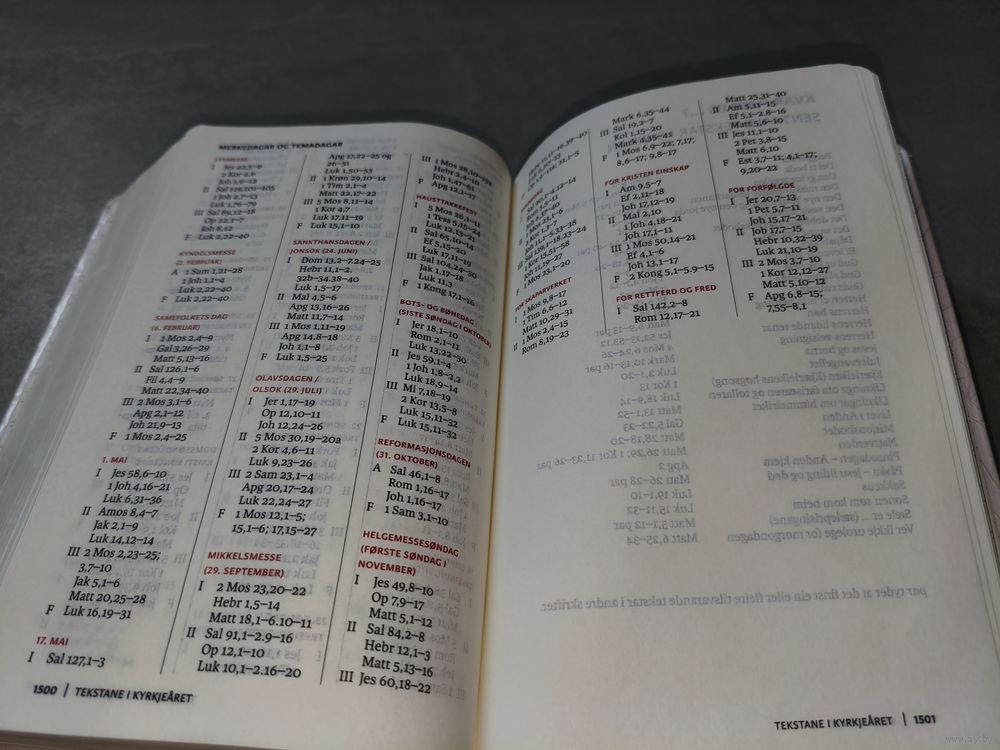 MERKEDAGAR OG TEMADAGAR
LYSMESSE
I Jes
2 Kor 4,6
Joh
II Sal 119,101–105
1 Joh 2,7–13
Luk 1,76–79
III Sal 89,12–18
Op 22,1–7
Joh 8,12
F Luk 2,22–40
KYNDELSMESSE
(2. FEBRUAR)
A 1 Sam 1,21–28
1 Joh 1,1–4
Luk 2,22–40
F Luk 2,22–40
SAMEFOLKETS DAG
(6. FEBRUAR)
I 1 Mos 2,4–9
Gal 3,26–29
Matt 5,13–16
II Sal 126,1–6
Fil 4,4–9
Matt 22,34–40
III 2 Mos 3,1–6
Apg 2,1–12
Joh 21,9–13
F 1 Mos 2,4–25
1. MAI
I Jes 58,6–10
1 Joh 4,16–21
Luk 6,31–36
II Amos 8,4–7
Jak 2,1–9
Luk 14,12–14
III 2 Mos 2,23–25;
3,7–10
Jak 5,1–6
Matt 20,25–28
F Luk 16,19–31
17. MAI
I Sal 127,1–3
Apg 17,22–25 og
26–31
Luk 1,50–53
II 1 Krøn 29,10–14
1 Tim 2,1–4
Matt 22,17–22
III 5 Mos 8,11–14
1 Kor 4,7
Luk 17,11–19
F Luk 15,1–10
SANKTHANSDAGEN /
JONSOK (24. JUNI)
I Dom 13,2–7.24–25
Hebr 11,1–2.
32b–34.38–40
Luk 1,5–17
II Mal 4,5–6
Apg 13,16–26
Matt 11,7–14
III 1 Mos 1,11–19
Apg 14,8–18
Joh 1,1–8
F Luk 1,5–25
OLAVSDAGEN /
OLSOK (29. JULI)
I Jer 1,17–19
Op 12,10–11
Joh 12,24–26
II 5 Mos 30,19–20a
2 Kor 4,6–11
Luk 9,23–26
III 2 Sam 23,1–4
Apg 20,17–24
Luk 22,24–27
F 1 Mos 12,1–5;
15,1–6; 17,15–27
MIKKELSMESSE
(29. SEPTEMBER)
I 2 Mos 23,20–22
Hebr 1,5–14
Matt 18,1–6.10–11
II Sal 91,1–2.9–16
Op 12,1–10
Luk 10,1–2.16–20
III 1 Mos
Hebr 2,4–10
Joh 1,47–51
F Apg 12,1–17
HAUSTTAKKEFEST
I 5 Mos 26,1–11
1 Tess 5,15–24
Luk 12,13–21
II Sal 65,10–14
Ef 5,15–20
Luk 17,11–19
III Sal 104,24–30
Jak 1,17–18
Luk 11,3
F 1 Kong 17,1–16
BOTS- OG BØNEDAG
(SISTE SØNDAG I OKTOBER)
I Jer 18,1–10
Rom 2,1–11
Luk 13,22–30
II Jes 59,1–4
1 Joh 1,8–2,2
Luk 18,9–14
III Mi 7,18–19
2 Kor 13,5–8
Luk 15,11–32
F Luk 15,11–32
REFORMASJONSDAGEN
(31. OKTOBER)
A Sal 46,1–8
Rom 1,16–17
Joh 1,16–17
F 1 Sam 3,1–10
HELGEMESSESØNDAG
(FØRSTE SØNDAG I
NOVEMBER)
I Jes 49,8–10
Op 7,9–17
Matt 5,1–12
II Sal 84,2–8
Hebr 12,1–3
Matt 5,13–16
III Jes 60,18–22
1500 | TEKSTANE I KYRKJEÅRET
Joh 11,17–27
I Kor 15,51–58
Joh 11,19–27
F 1 Mos 23,1–20
FOR SKAPARVERKET
I 1 Mos 9,8–17
1 Tim 6,6–12
Matt 10,29–31
II 1 Mos 2,4–15
Rom 8,19–23
Mark 6,35–44
III Sal 19,2–7
Kol 1,15–20
Mark 4,35–41
F 1 Mos 6,9–22; 7,17;
8,6–17; 9,8–17
FOR KRISTEN EINSKAP
I Am 9,5–7
Ef 2,11–18
Joh 17,12–19
II Mal 2,10
1 Joh 4,18–21
Joh 17,1–11
III 1 Mos 50,14–21
Ef 4,1–6
Joh 13,1–17
F 2 Kong 5,1–5.9–15
FOR RETTFERD OG FRED
I Sal 142,2–8
Rom 12,17–21
Matt 25,31–40
II Am 5,11–15
Ef 5,1–2.8–16
Matt 5,6–10
III Jes 11,1–10
2 Pet 3,8–15
Matt 6,10
F Est 3,7–11; 4,1–17;
9,20–22
FOR FORFØLGDE
I Jer 20,7–13
1 Pet 5,7–11
Joh 15,17–21
II Job 17,7–15
Hebr 10,32–39
Luk 21,10–19
III 2 Mos 3,7–10
1 Kor 12,12–27
Matt 5,10–12
F Apg 6,8–15;
7,55–8,1
TEKSTANE I KYRKJEÅRET | 1501